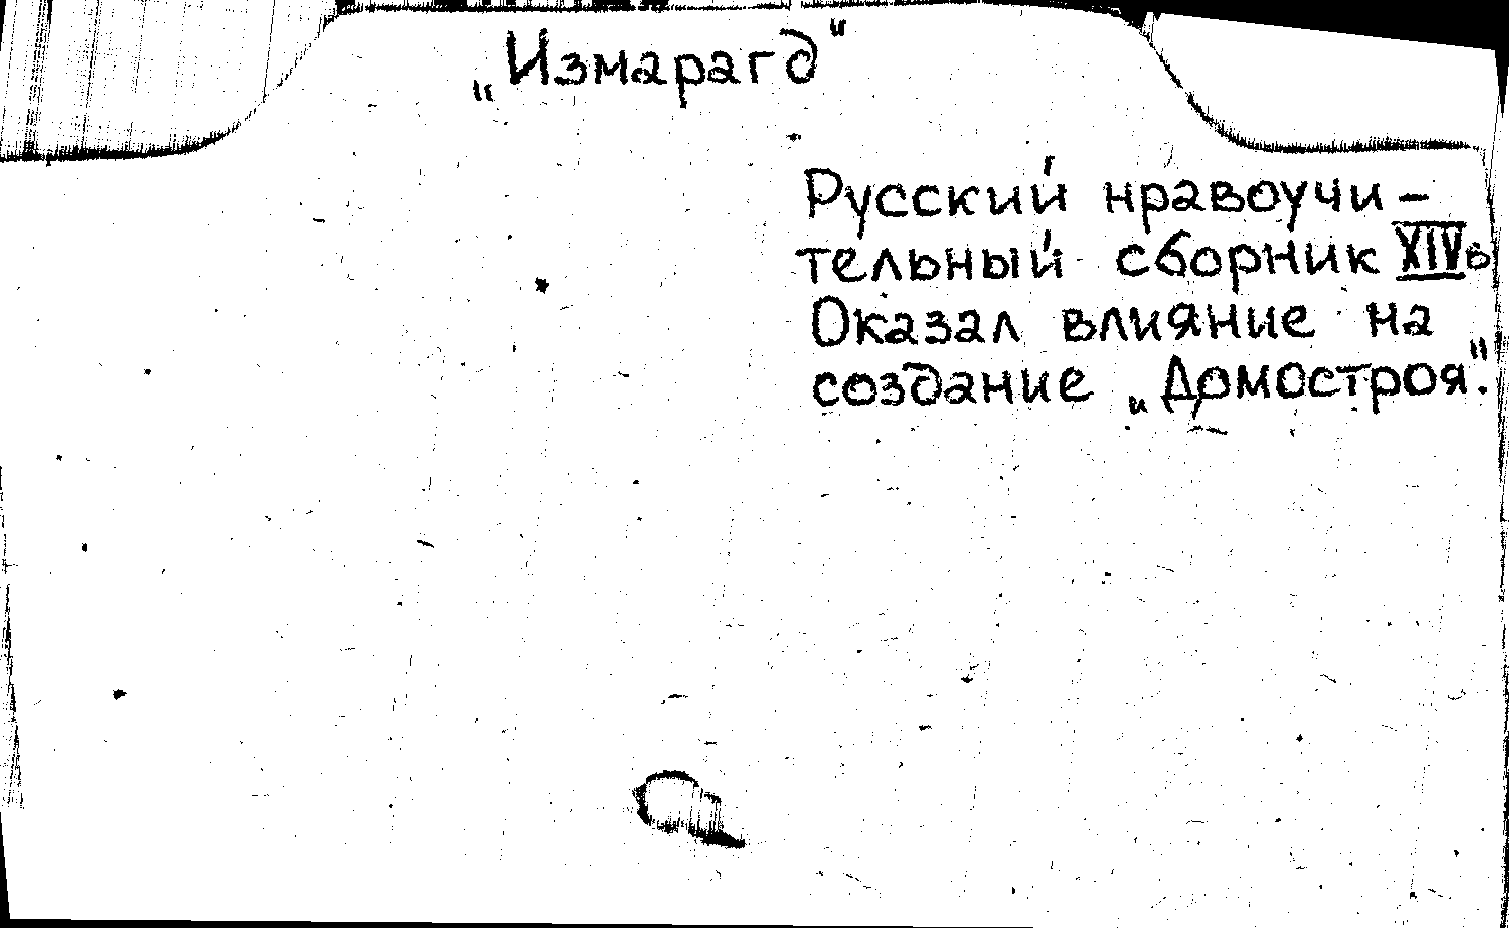 „Измарагд"
Русский нравоучи-
тельный сборник XIVв
Оказал влияние на
создание „Домостроя".